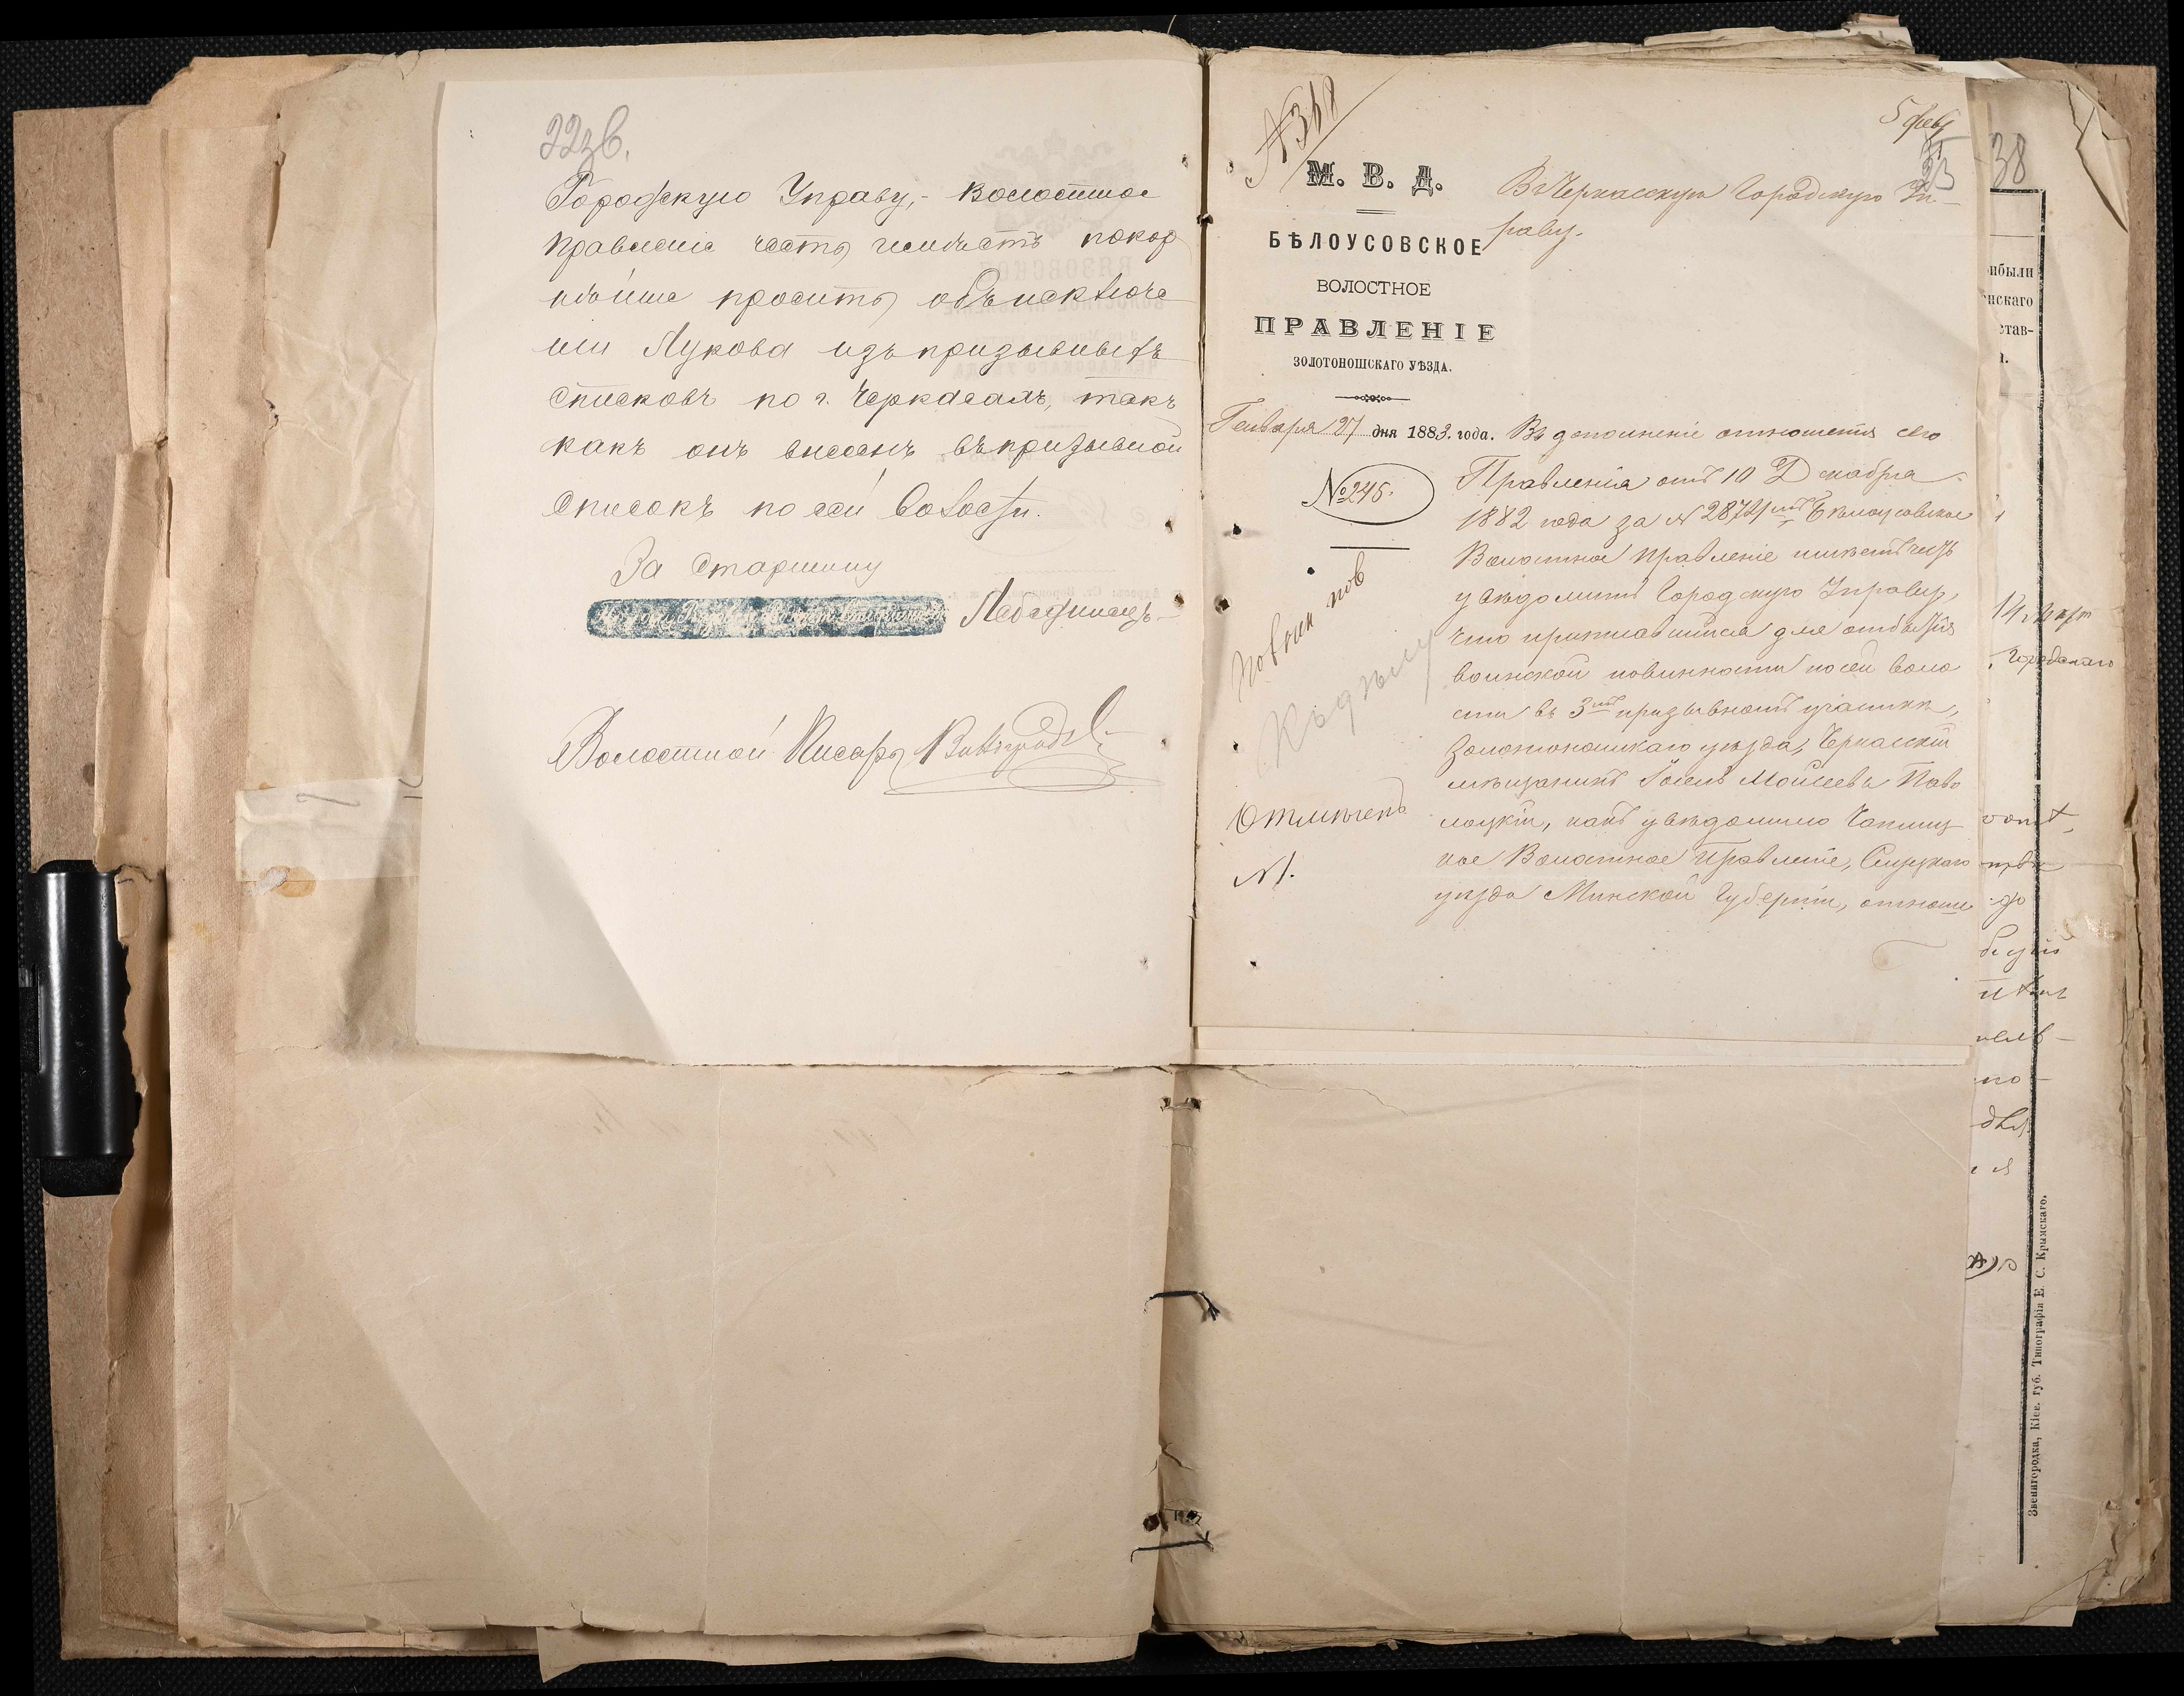 22зв.
Городскую Управу,- Волостное
Правленіе честь имѣетъ покор
нѣйше просить объ исключе
ніи Лукова изъ призывныхъ
списковъ по г. Черкасамъ, такъ
какъ онъ внесенъ въ призывной
списокъ по сей волости.
За Старшину
Лебединецъ
Волостной Писарь
5 февр
23
М. В. Д.
Въ Черкасскую Городскую Уп-
раву.
БѢЛОУСОВСКОЕ
ВОЛОСТНОЕ
ПРАВЛЕНІЕ
ЗОЛОТОНОШСКАГО УѢЗДА.
Генваря 27 дня 1883. года.
№ 245.
Въ дополненіе отношенія сего
Правленія отъ 10 Декабря
1882 года за № 2872, Бѣлоусовское
Волостное Правленіе имѣетъ честь
увѣдомить Городскую Управу,
что приписавшійся для отбытія
воинской повинности по сей воло
сти въ 3мъ призывномъ участкѣ,
Золотоношскаго уѣзда, Черкасскій
мѣщанинъ Іосель Моисеевъ Паво
лоцкій, какъ увѣдомило
ное Волостное Правленіе, Слуцкаго
уѣзда Минской Губерніи, отноше
Къ дѣлу
Отмѣченъ
38
ибыли
нскаго
став-
Городскаго
Звенигородка, Кіев. губ. Типографія Е. С. Крымскаго.